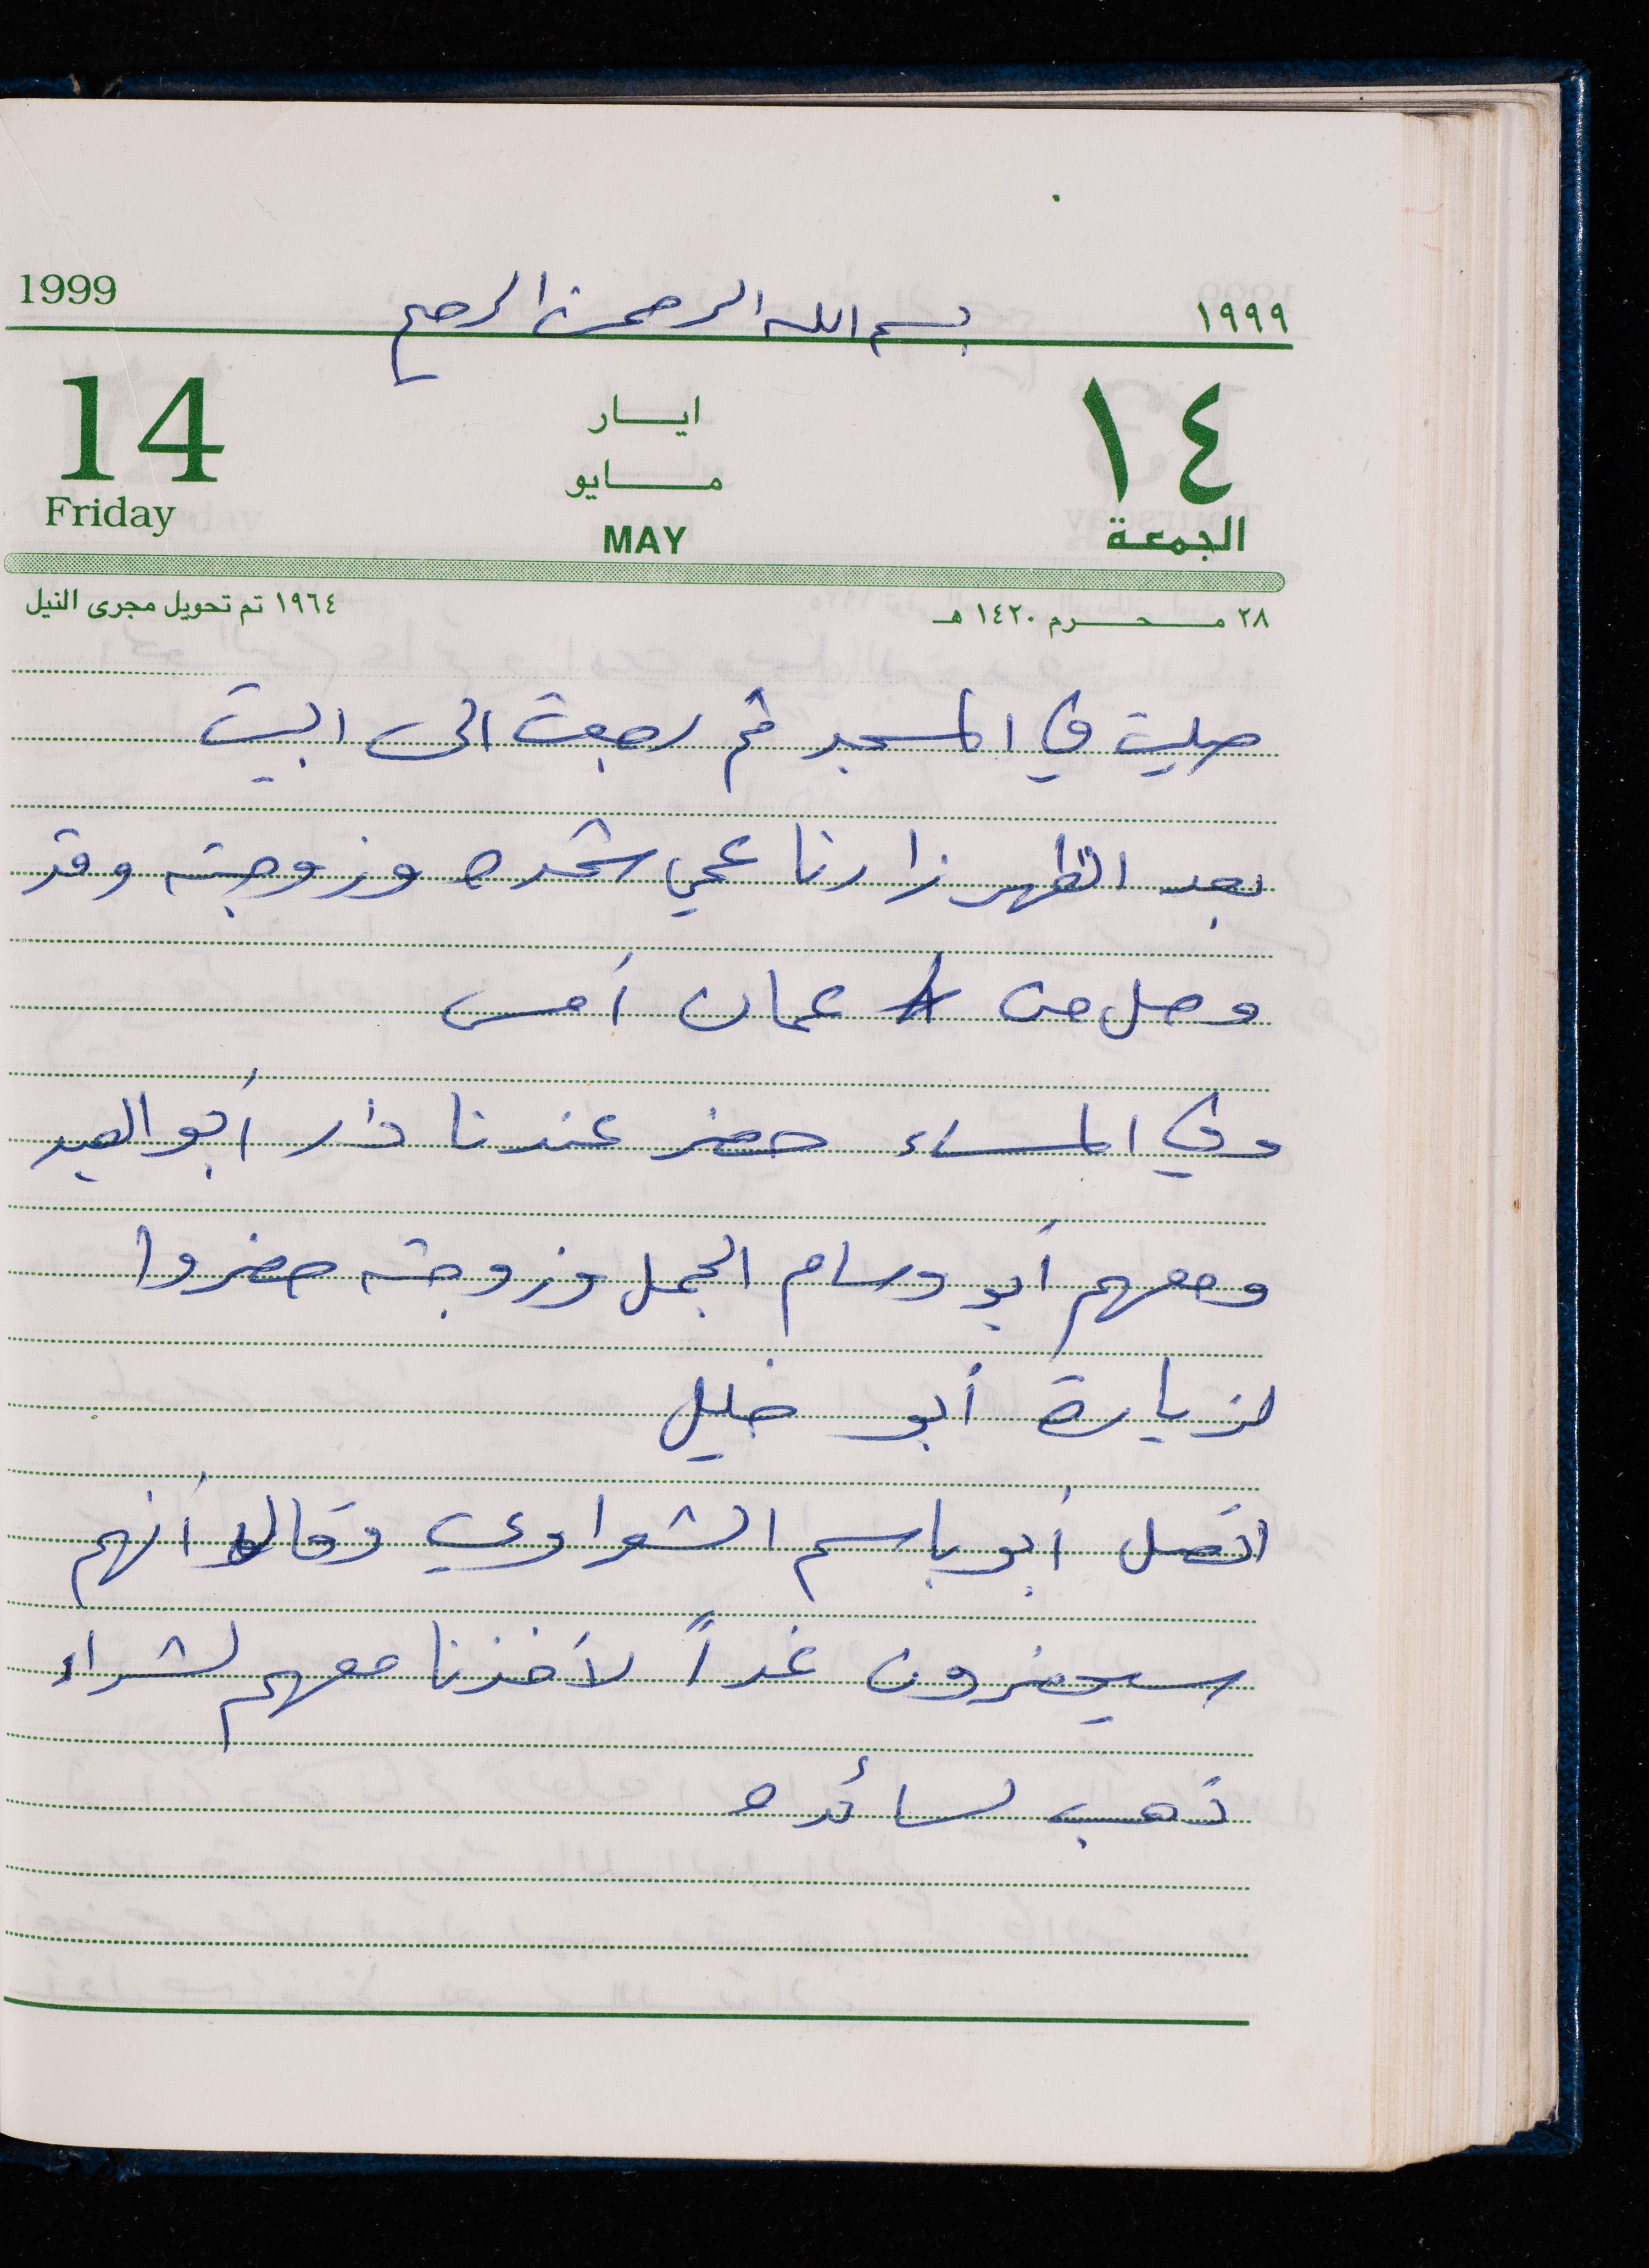 1999 بسم الله الرحمن الرحيم ١٩٩٩
14 ايـــار ١٤
مـــايو
Friday MAY الجمعة
٢٨ مـــحـــرم ١٤٢٠ هـ ١٩٦٤ تم تحويل مجرى النيل
صليت في المسجد ثم رجعت الى البيت
بعد الظهر زارنا عمي شحده وزوجته وقد
وصل من عمان أمس
وفي المساء حضر عندنا دار أبو العبد
ومعهم أبو وسام الجمل وزوجته حضروا
لزيارة أبو خليل
اتصل أبو باسم الشعراوي وقال أنهم
سيحضرون غداً لأخذنا معهم لشراء
ذهب لسائده